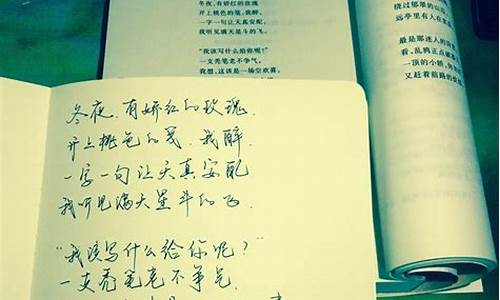 冬夜,有娇红的玫瑰
开上桃色的笺,我醉,
一字一句让天真安配,
我听见满天星斗的飞。
"我该写什么给你呢?"
一支秃笔老不争气。
我想,这该是一场空欢喜,
绕过郁翠的山
远亭里有人在
最是那迷人的
看,乱鸦正点
一顶的小轿,
又赶着前路的
冬夜.有娇红的玫瑰.
开上桃色的笺.我醉.
一字一句让天真安配
我听见满天星斗的飞.
"我该写什么给你呢?"
一支秃笔老不争气.